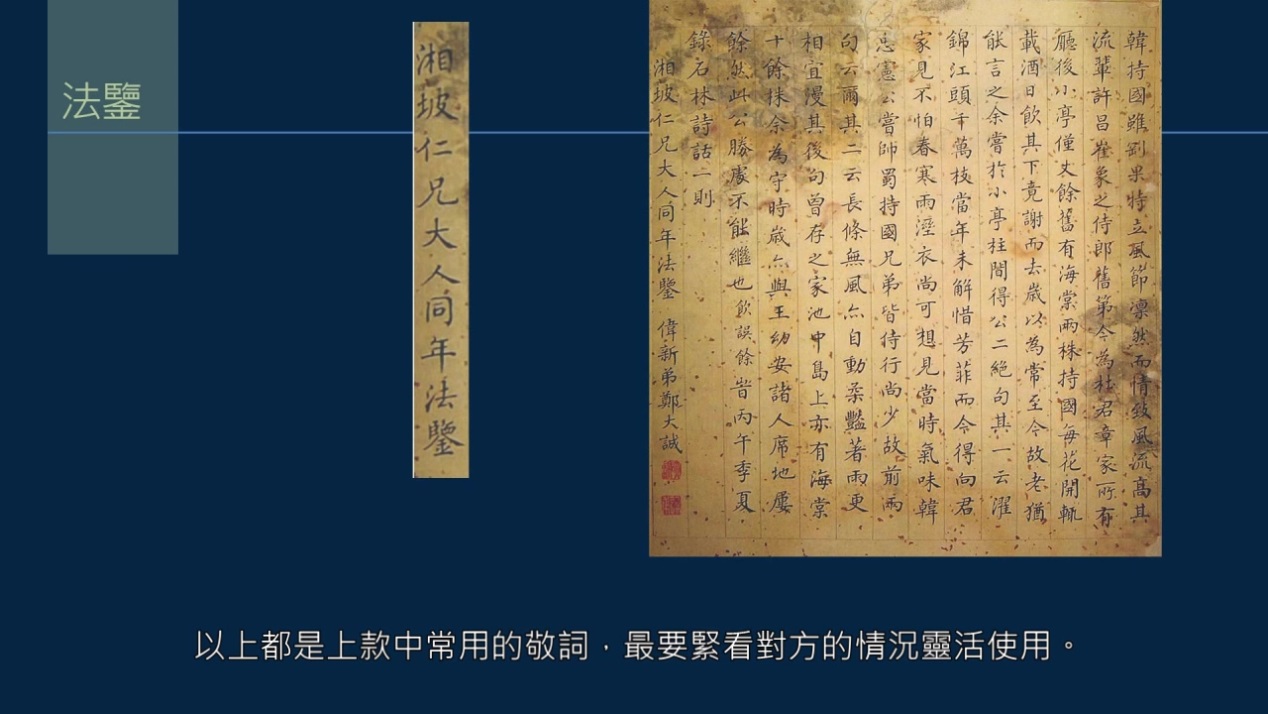 法鑒
湘坡仁兄大人同年法鑒
韓持國雖剛果特立風節凜然而情致風流高其
流輩許昌崔象之侍郎舊第今為杜君章家所有
廳後小亭僅丈餘舊有海棠兩株持國每花開輒
載酒日飲其下竟謝而去歲以為常至今故老猶
能言之余嘗於小亭柱間得公二絕句其一云濯
錦江頭千萬枝當年未解惜芳菲而今得向君
家見不怕春寒雨溼衣尚可想見當時氣味韓
忠憲公嘗帥蜀持國兄弟皆侍行尚少故前兩
句云爾其二云長條無風亦自動柔豔著雨更
相宜漫其後句曾存之家池中島上亦有海棠
十餘株余為守時歲亦與王幼安諸人席地屢
餘然此公勝處不能繼也飲誤餘 旹丙午季夏
錄石林詩話二則
湘坡仁兄大人同年法鑒 偉新弟鄭大誠
以上都是上款中常用的敬詞，最要緊看對方的情況靈活使用。